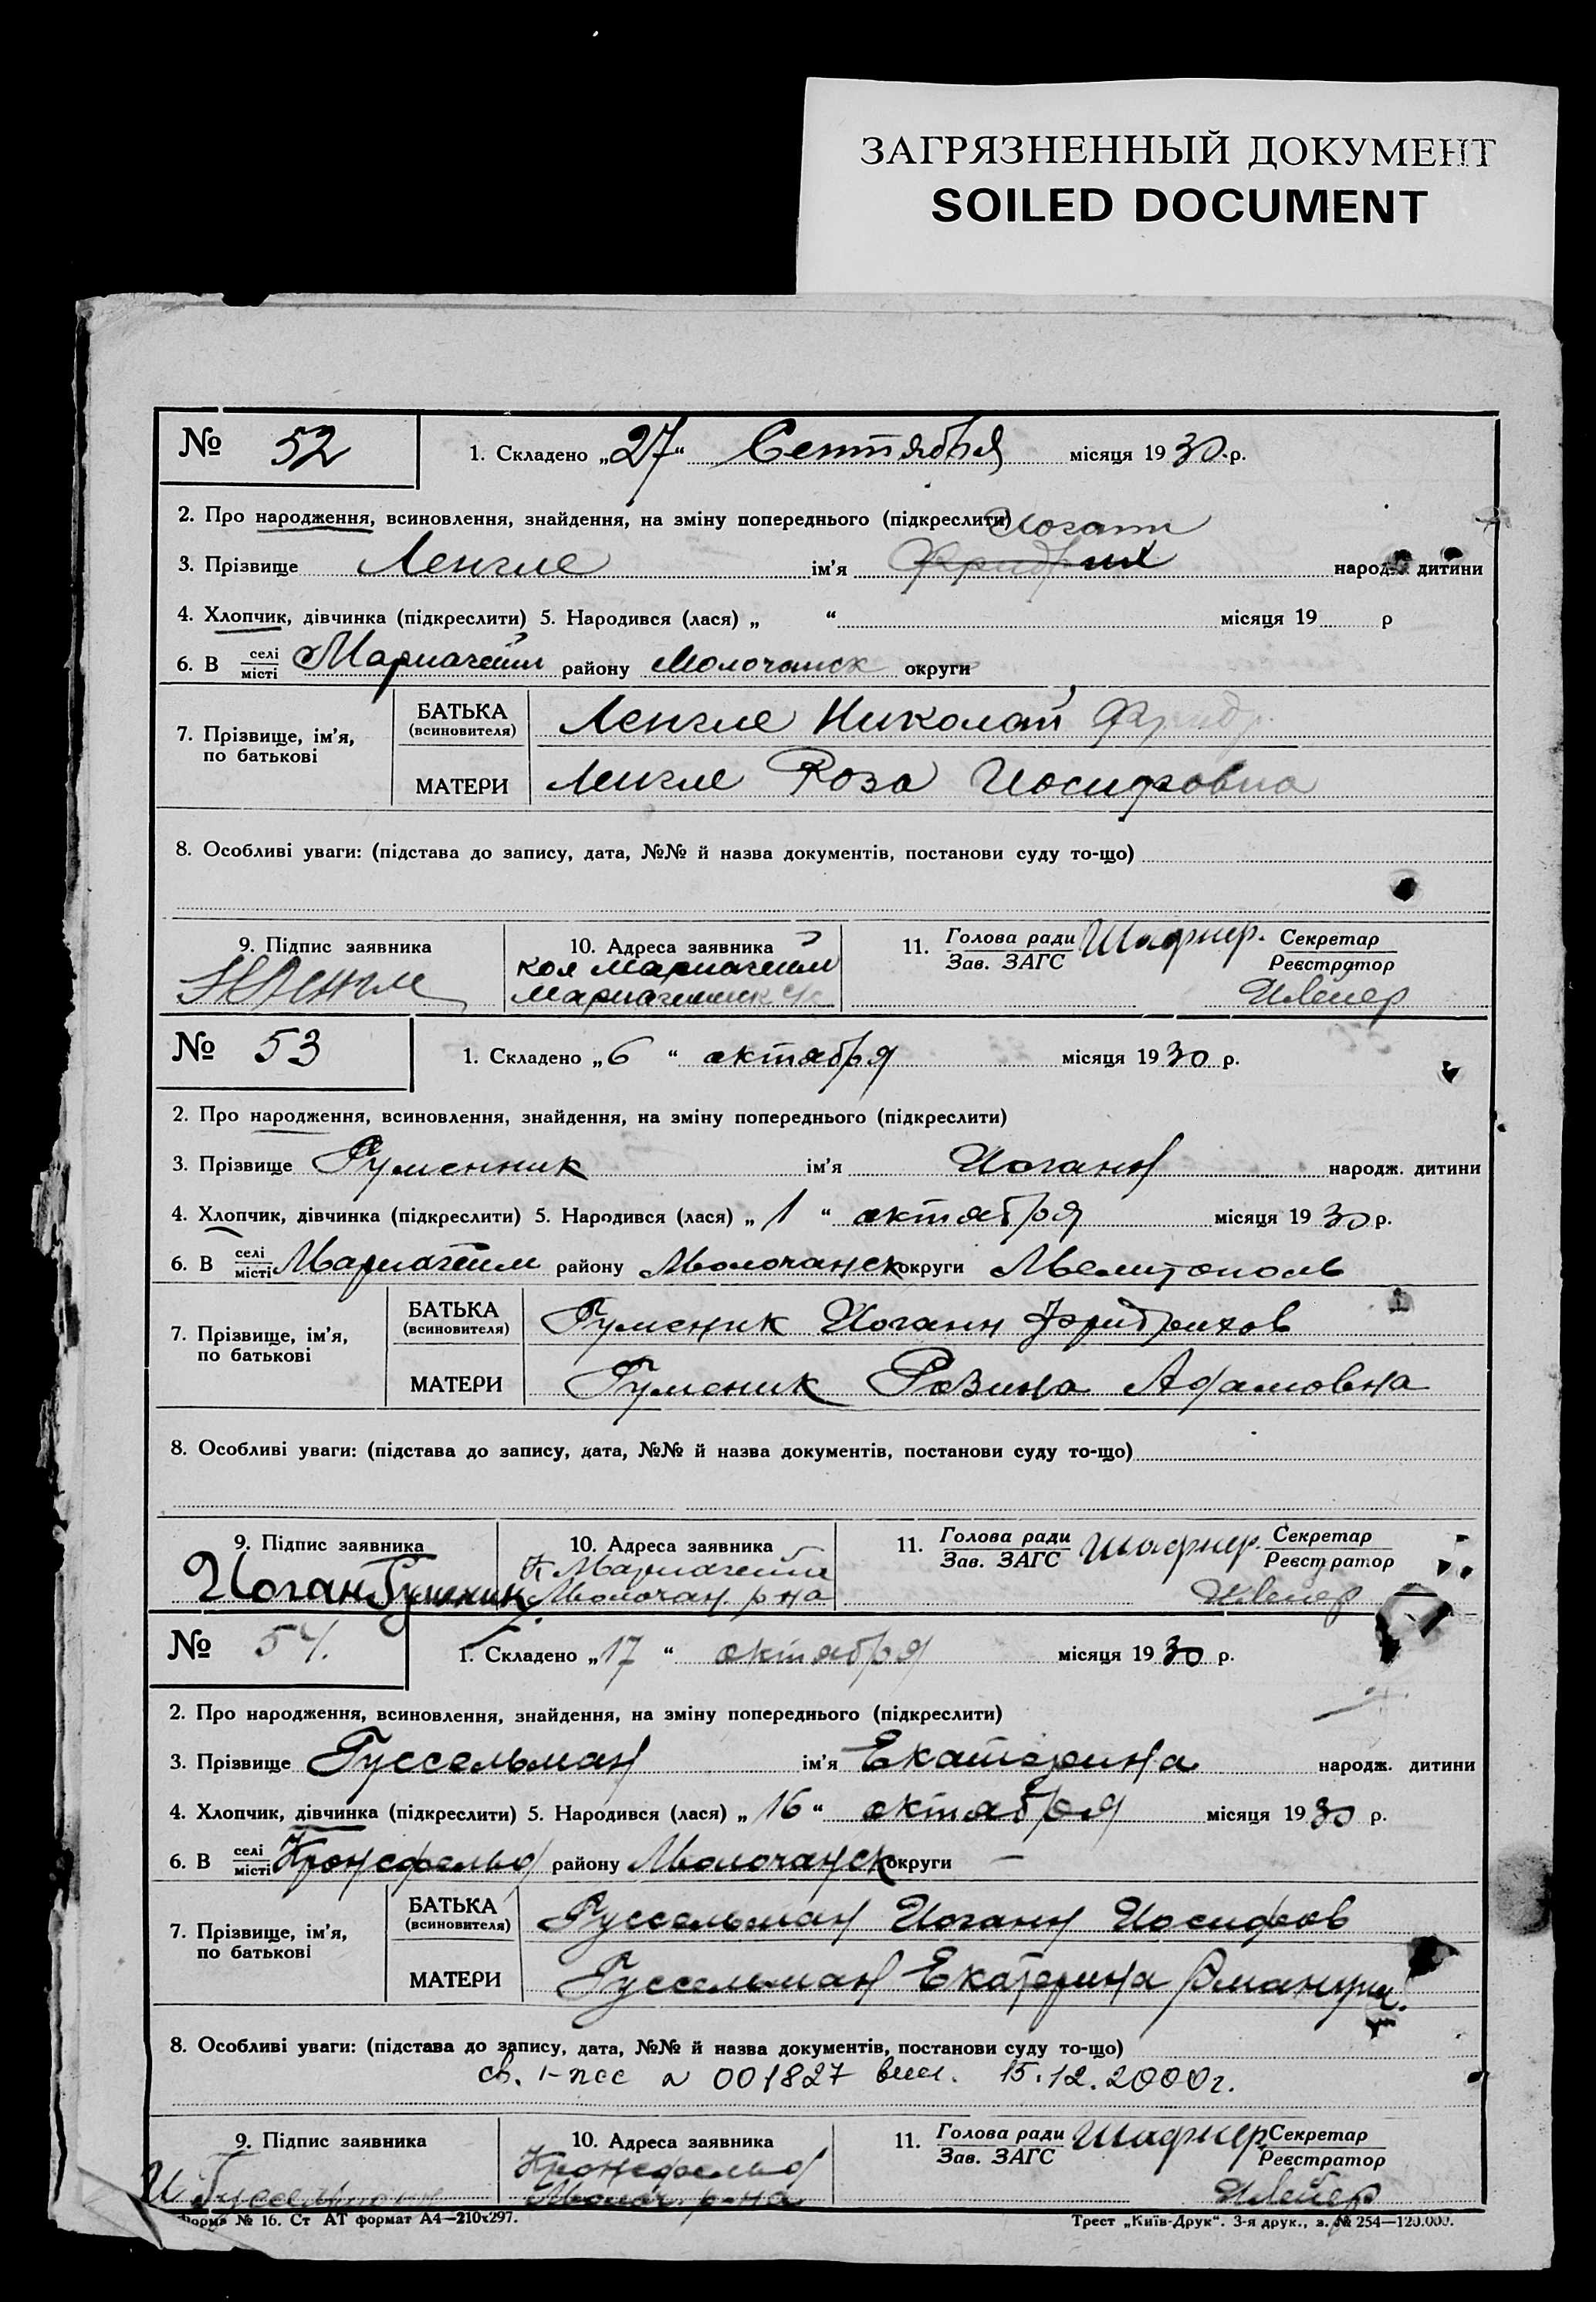 ЗАГРЯЗНЕННЫЙ ДОКУМЕНТ
SOILED DOCUMENT
№ 52 1. Складено „27“ Сентября місяця 1930 р.
2. Про народження, всиновлення, знайдення, на зміну попереднього (підкреслити)
Иоганн
3. Прізвище Ленгле ім’я Фридрих народж. дитини
4. Хлопчик, дівчинка (підкреслити) 5. Народився (лася) „ “ місяця 19 р
6. В селі місті Мариагейм району Молочанск округи
7. Прізвище, ім’я, по батькові БАТЬКА (всиновителя) Ленгле Николай Фридр.
МАТЕРИ Ленгле Роза Иосифовна
8. Особливі уваги: (підстава до запису, дата, №№ й назва документів, постанови суду то-що)
9. Підпис заявника 10. Адреса заявника 11. Голова ради Зав. ЗАГС Шафнер. Секретар Реєстратор
Н Ленгле кол Мариагейм
№ 53 1. Складено „6“ октября місяця 1930 р.
2. Про народження, всиновлення, знайдення, на зміну попереднього (підкреслити)
3. Прізвище Гуменник ім’я Иоганн народж. дитини
4. Хлопчик, дівчинка (підкреслити) 5. Народився (лася) „1“ октября місяця 1930 р.
6. В селі місті Мариагейм району Молочанск округи Мелитополь
7. Прізвище, ім’я, по батькові БАТЬКА (всиновителя) Гуменик Иоганн Фридрихов
МАТЕРИ Гуменик Розина Адамовна
8. Особливі уваги: (підстава до запису, дата, №№ й назва документів, постанови суду то-що)
9. Підпис заявника 10. Адреса заявника 11. Голова ради Зав. ЗАГС Шафнер. Секретар Реєстратор
Иоган Гуменик К Мариагейм
Молочан. р-на
№ 54. 1. Складено „17“ октября місяця 1930 р.
2. Про народження, всиновлення, знайдення, на зміну попереднього (підкреслити)
3. Прізвище Гуссельман ім’я Екатерина народж. дитини
4. Хлопчик, дівчинка (підкреслити) 5. Народився (лася) „16“ октября місяця 1930 р.
6. В селі місті Кронсфельд району Молочанск округи —
7. Прізвище, ім’я, по батькові БАТЬКА (всиновителя) Гуссельман Иоганн Иосифов
МАТЕРИ Гуссельман Екатерина
8. Особливі уваги: (підстава до запису, дата, №№ й назва документів, постанови суду то-що)
св. 001827 15.12.2000г.
9. Підпис заявника 10. Адреса заявника 11. Голова ради Зав. ЗАГС Шафнер Секретар Реєстратор
И Гуссельман Кронсфельд
Молоч. р-на
Форма № 16. Ст АТ формат А4—210х297. Трест „Київ-Друк“. 3-я друк., з. № 254—120.000.